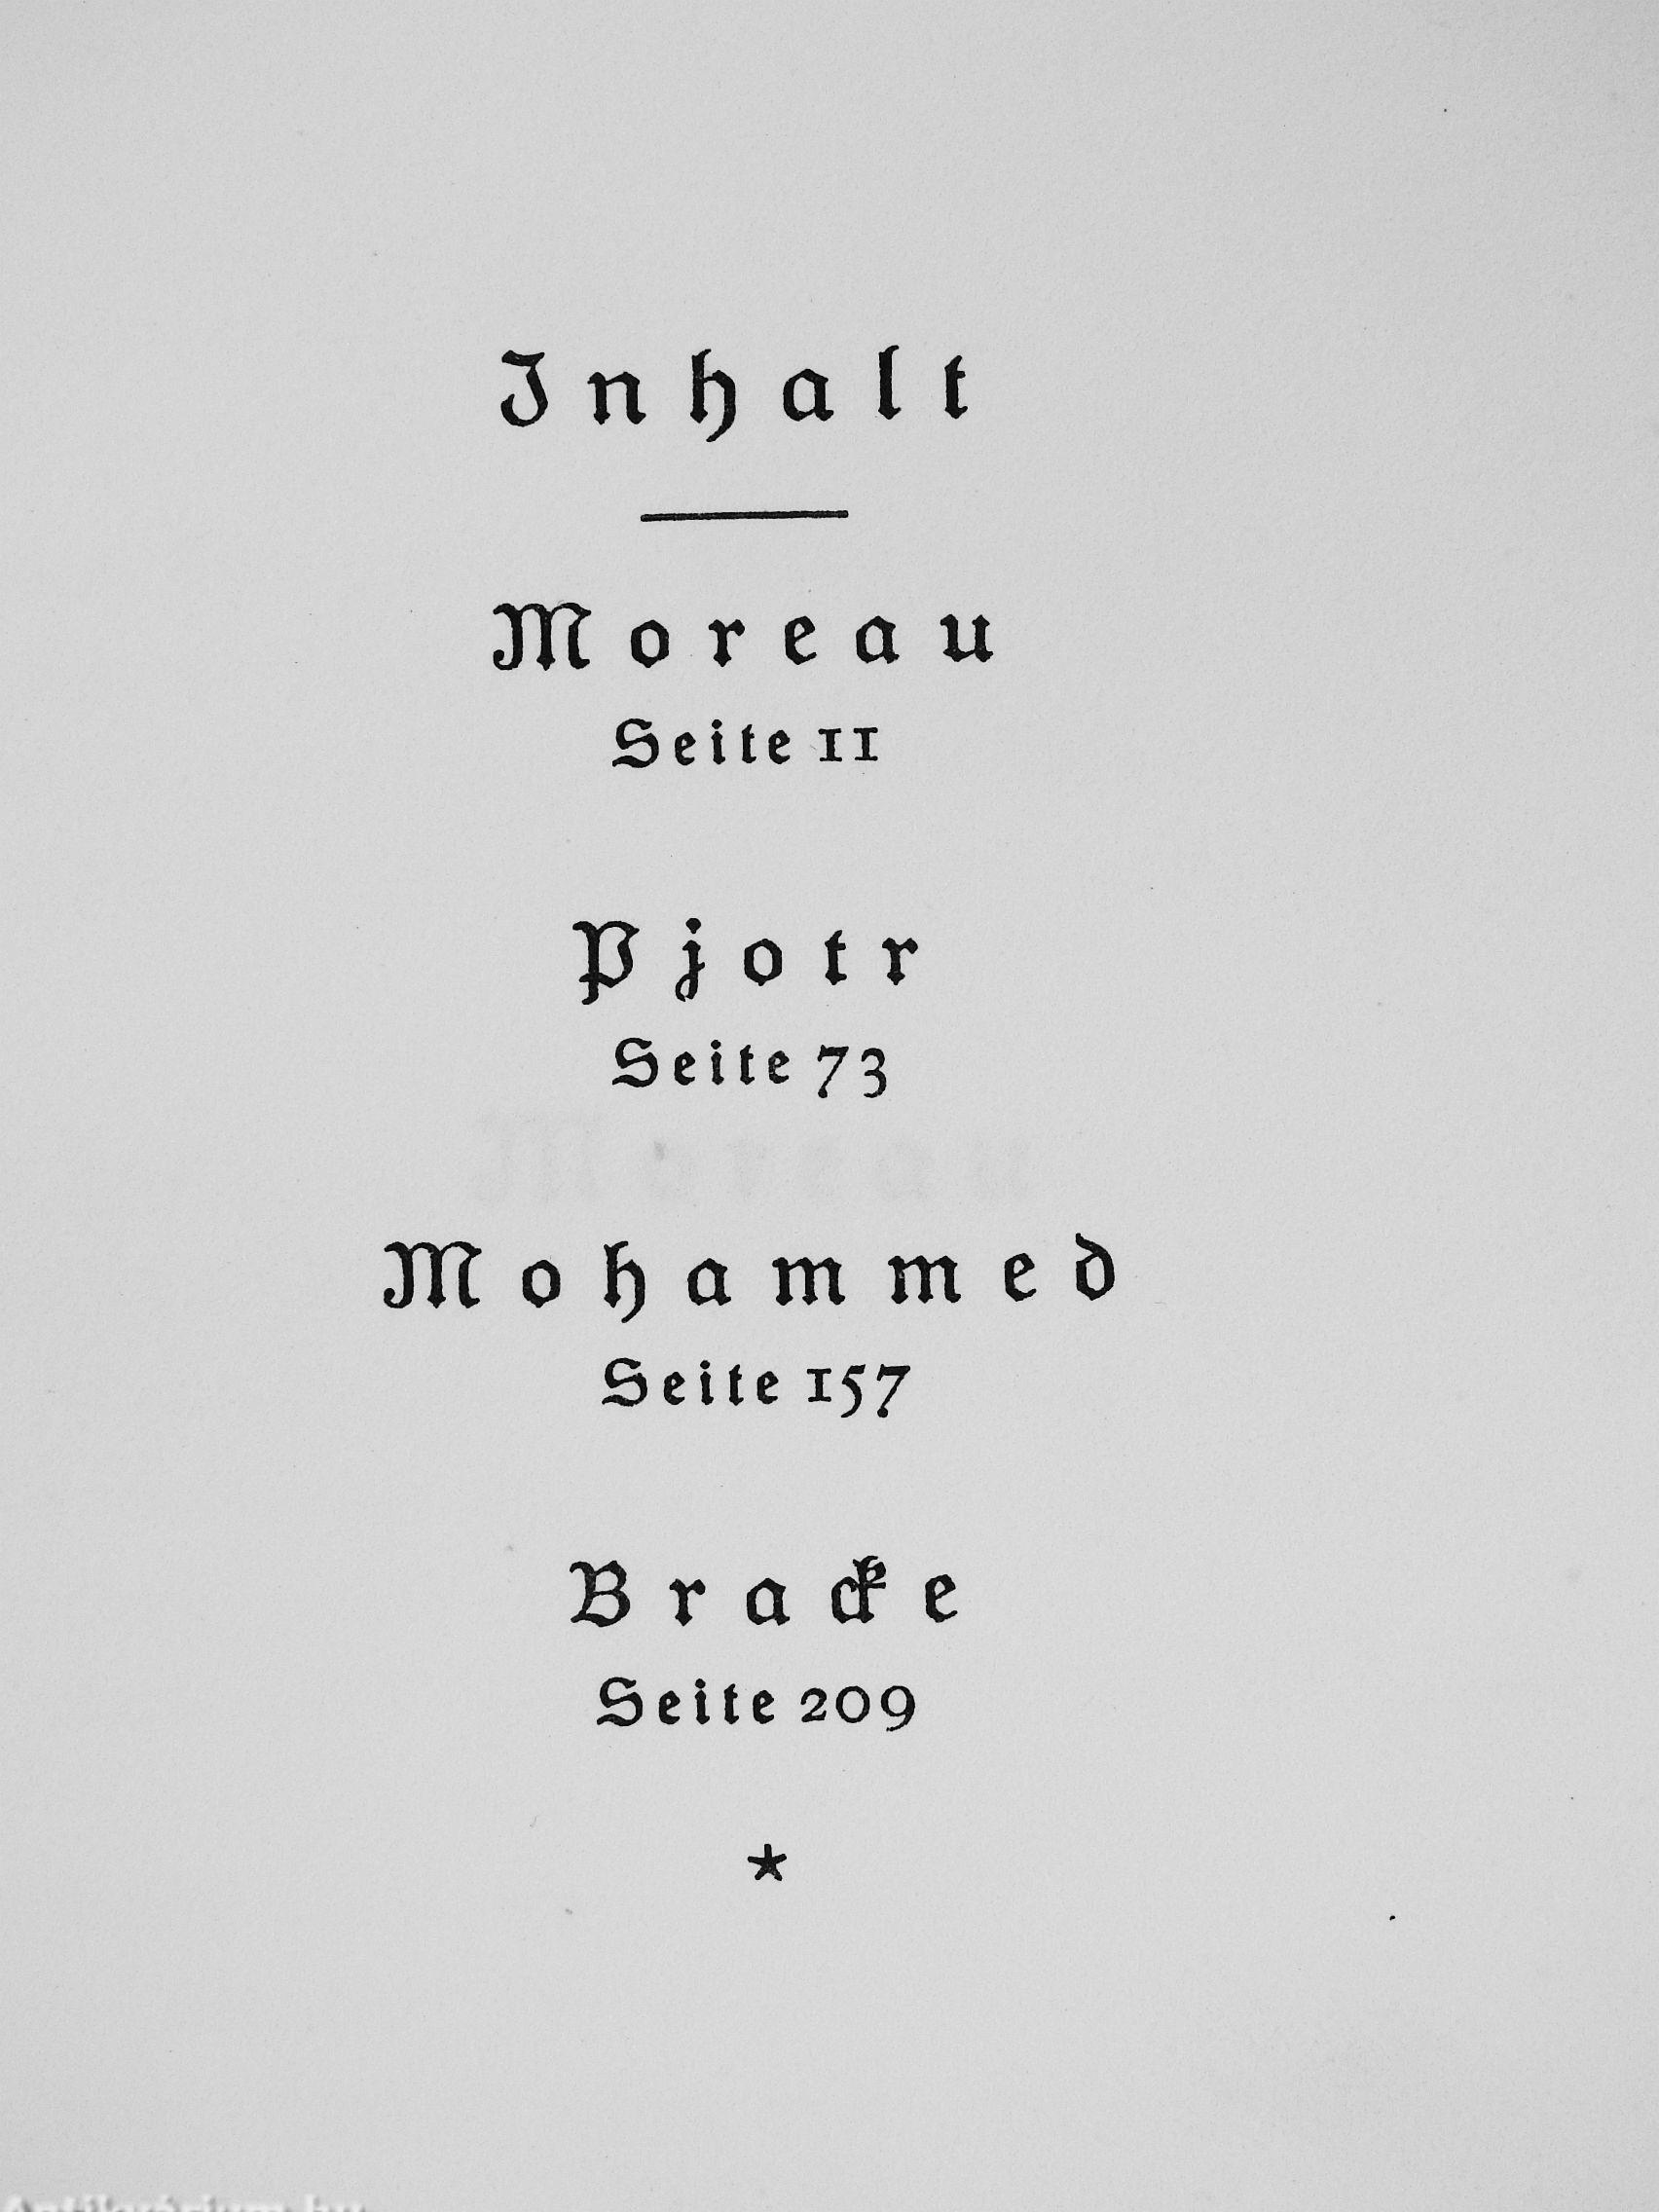 Inhalt
Moreau
Seite 11
Pjotr
Seite 73
Moreau
Mohammed
Seite 157
Bracke
Seite 209
*